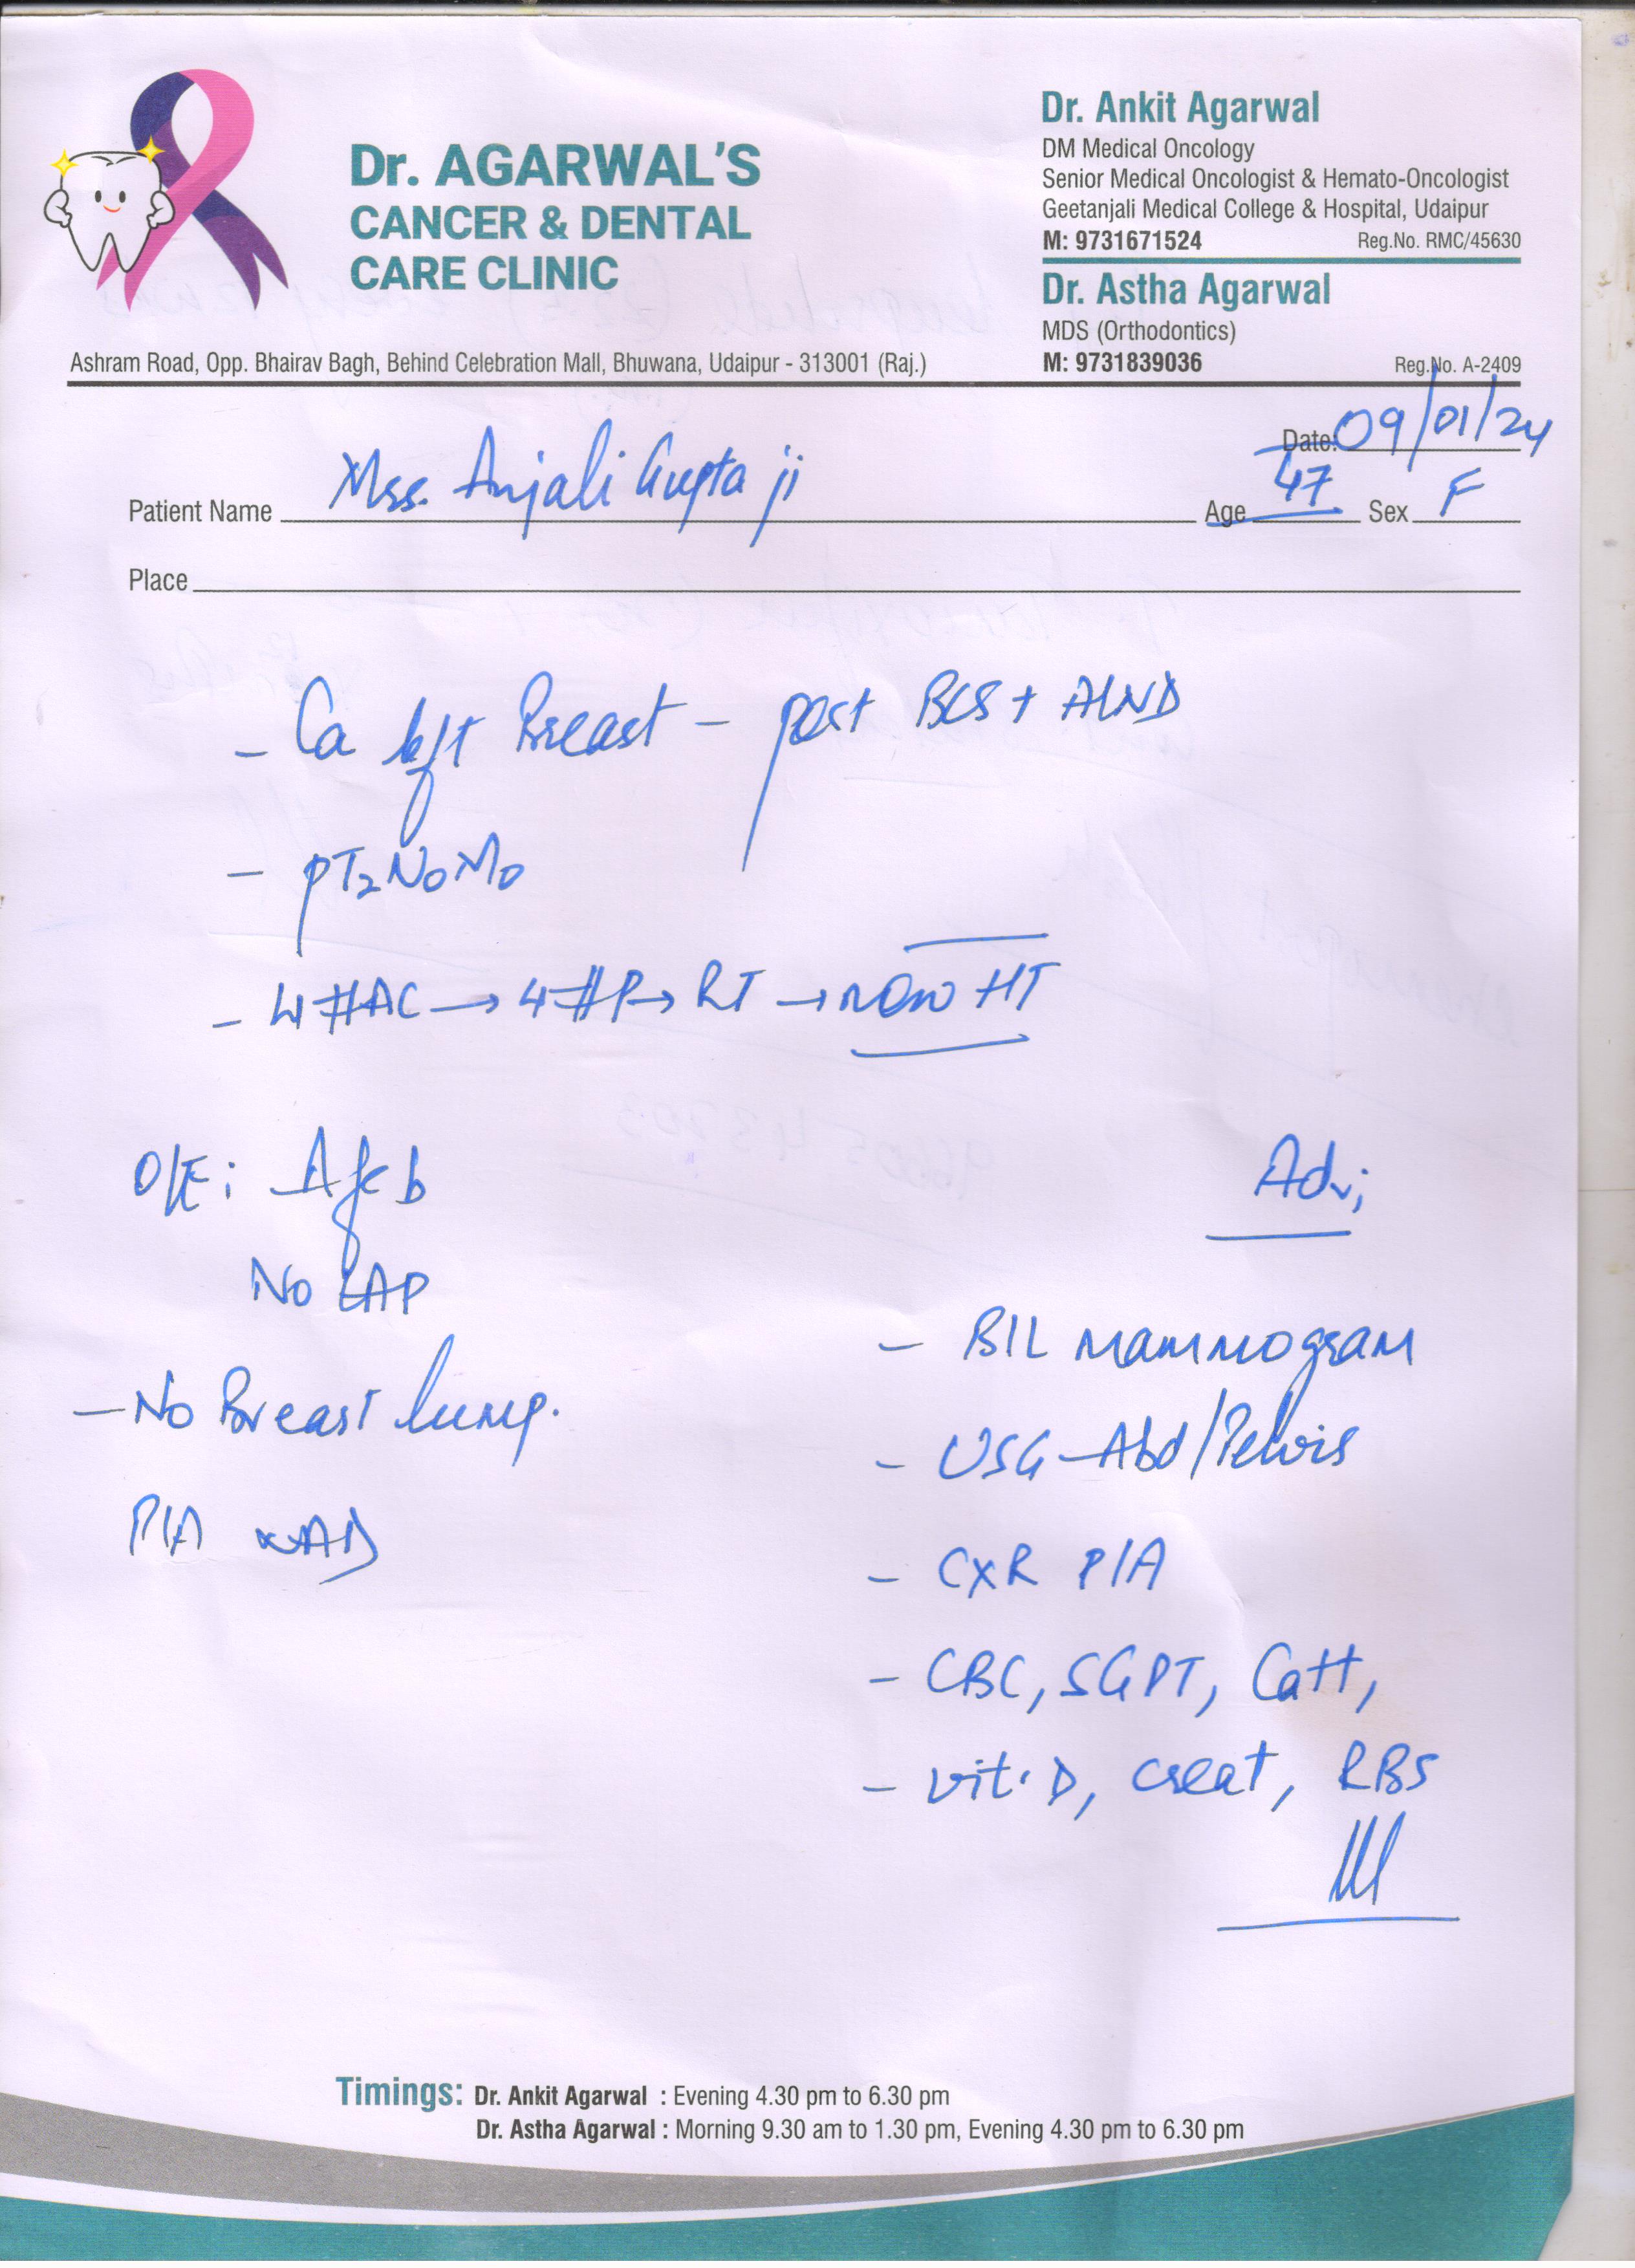 Dr. AGARWAL'S
CANCER & DENTAL
CARE CLINIC
Ashram Road, Opp. Bhairav Bagh, Behind Celebration Mall, Bhuwana, Udaipur - 313001 (Raj.)
Dr. Ankit Agarwal
DM Medical Oncology
Senior Medical Oncologist & Hemato-Oncologist
Geetanjali Medical College & Hospital, Udaipur
M: 9731671524 Reg.No. RMC/45630
Dr. Astha Agarwal
MDS (Orthodontics)
M: 9731839036 Reg.No. A-2409
Date: 09/01/24
Patient Name Mrs. Anjali Gupta ji Age 47 Sex F
Place
- Ca left Breast - post BCS + ALND
- pT2N0M0
- 4#AC → 4#P → RT → now HT
O/E: Afeb
No LAP
- No Breast lump.
P/A NAD
Adv;
- B/L mammogram
- USG - Abd/Pelvis
- CXR P/A
- CBC, SGPT, Ca++,
- vit. D, creat, RBS
Timings: Dr. Ankit Agarwal : Evening 4.30 pm to 6.30 pm
Dr. Astha Agarwal : Morning 9.30 am to 1.30 pm, Evening 4.30 pm to 6.30 pm